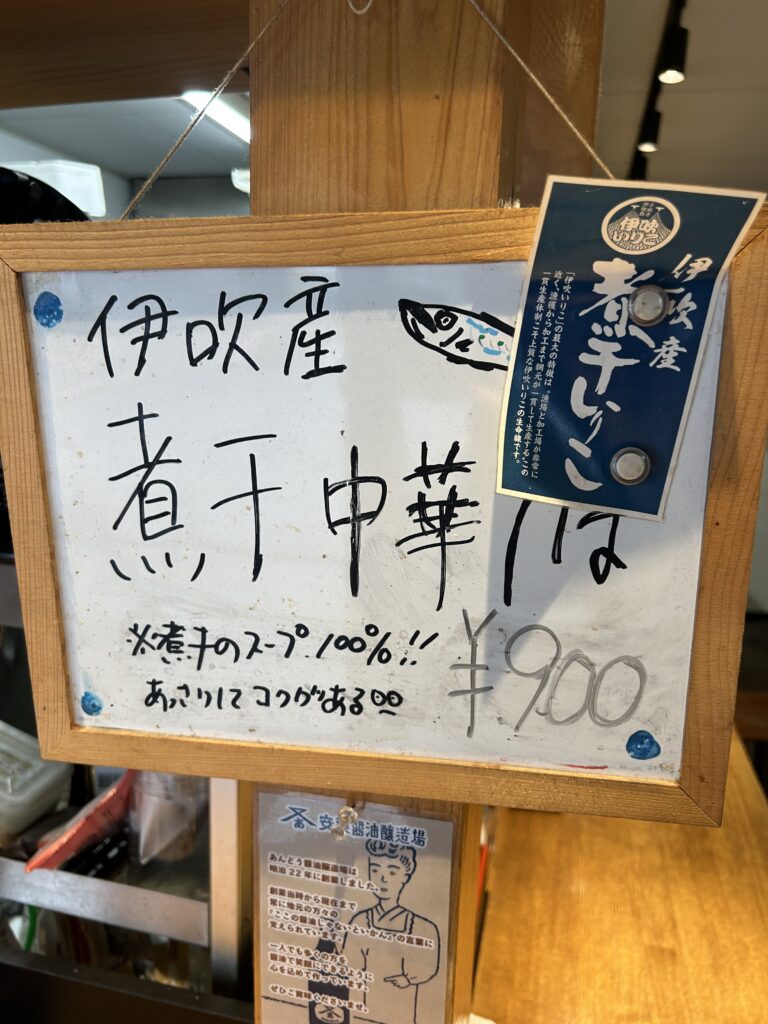 伊吹産
煮干中華そば
※煮干のスープ100%!!
あっさりしてコクがある
¥900
伊吹いりこ
伊吹産
煮干いりこ
「伊吹いりこ」の最大の特徴は。漁場と加工場が非常に
近く、漁獲から加工まで網元が一貫して生産する。この
一貫生産体制こそ上質な伊吹いりこの生命線です。
醤油醸造場
あんどう醤油醸造場は
明治22年に創業しました。
創業当時から現在まで
常に地元の方々の
『ここの醤油じゃないといかん』の言葉に
支えられています。
一人でも多くの方を
醤油で笑顔にできるように
心を込めて作っています。
ぜひご賞味くださいませ。